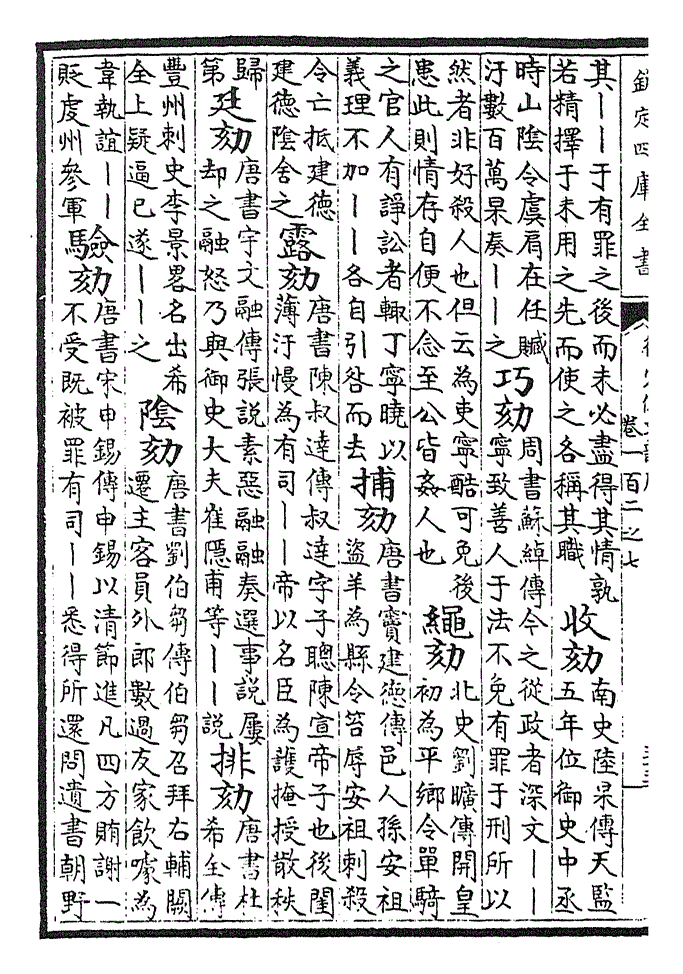 欽定四庫全書
卷一百二之七
其——于有罪之後而未必盡得其情孰若精擇于未用之先而使之各稱其職 收劾 南史陸杲傳天監五年位御史中丞
時山陰令虞肩在任贓汙數百萬杲奏——之 巧劾 周書蘇綽傳今之從政者深文——寧致善人于法不免有罪于刑所以
然者非好殺人也但云為吏寧酷可免後患此則情存自便不念至公皆姦人也 繩劾 北史劉曠傳開皇初為平鄉令單騎
之官人有諍訟者輙丁寧曉以義理不加——各自引咎而去 捕劾 唐書竇建德傳邑人孫安祖盜羊為縣令笞辱安祖刺殺
令亡抵建德建德陰舍之 露劾 唐書陳叔達傳叔達字子聰陳宣帝子也後閨薄汙慢為有司——帝以名臣為護掩授散秩
歸第 廷劾 唐書宇文融傳張說素惡融融奏選事說屢却之融怒乃與御史大夫崔隱甫等——說 排劾 唐書杜希全傳
豐州刺史李景畧名出希全上疑逼已遂——之 陰劾 唐書劉伯芻傳伯芻召拜右輔闕遷主客員外郎數過友家飲噱為
韋執誼——貶虔州參軍 驗劾 唐書宋申錫傳申錫以清節進凡四方賄謝一不受既被罪有司——悉得所還問遺書朝野